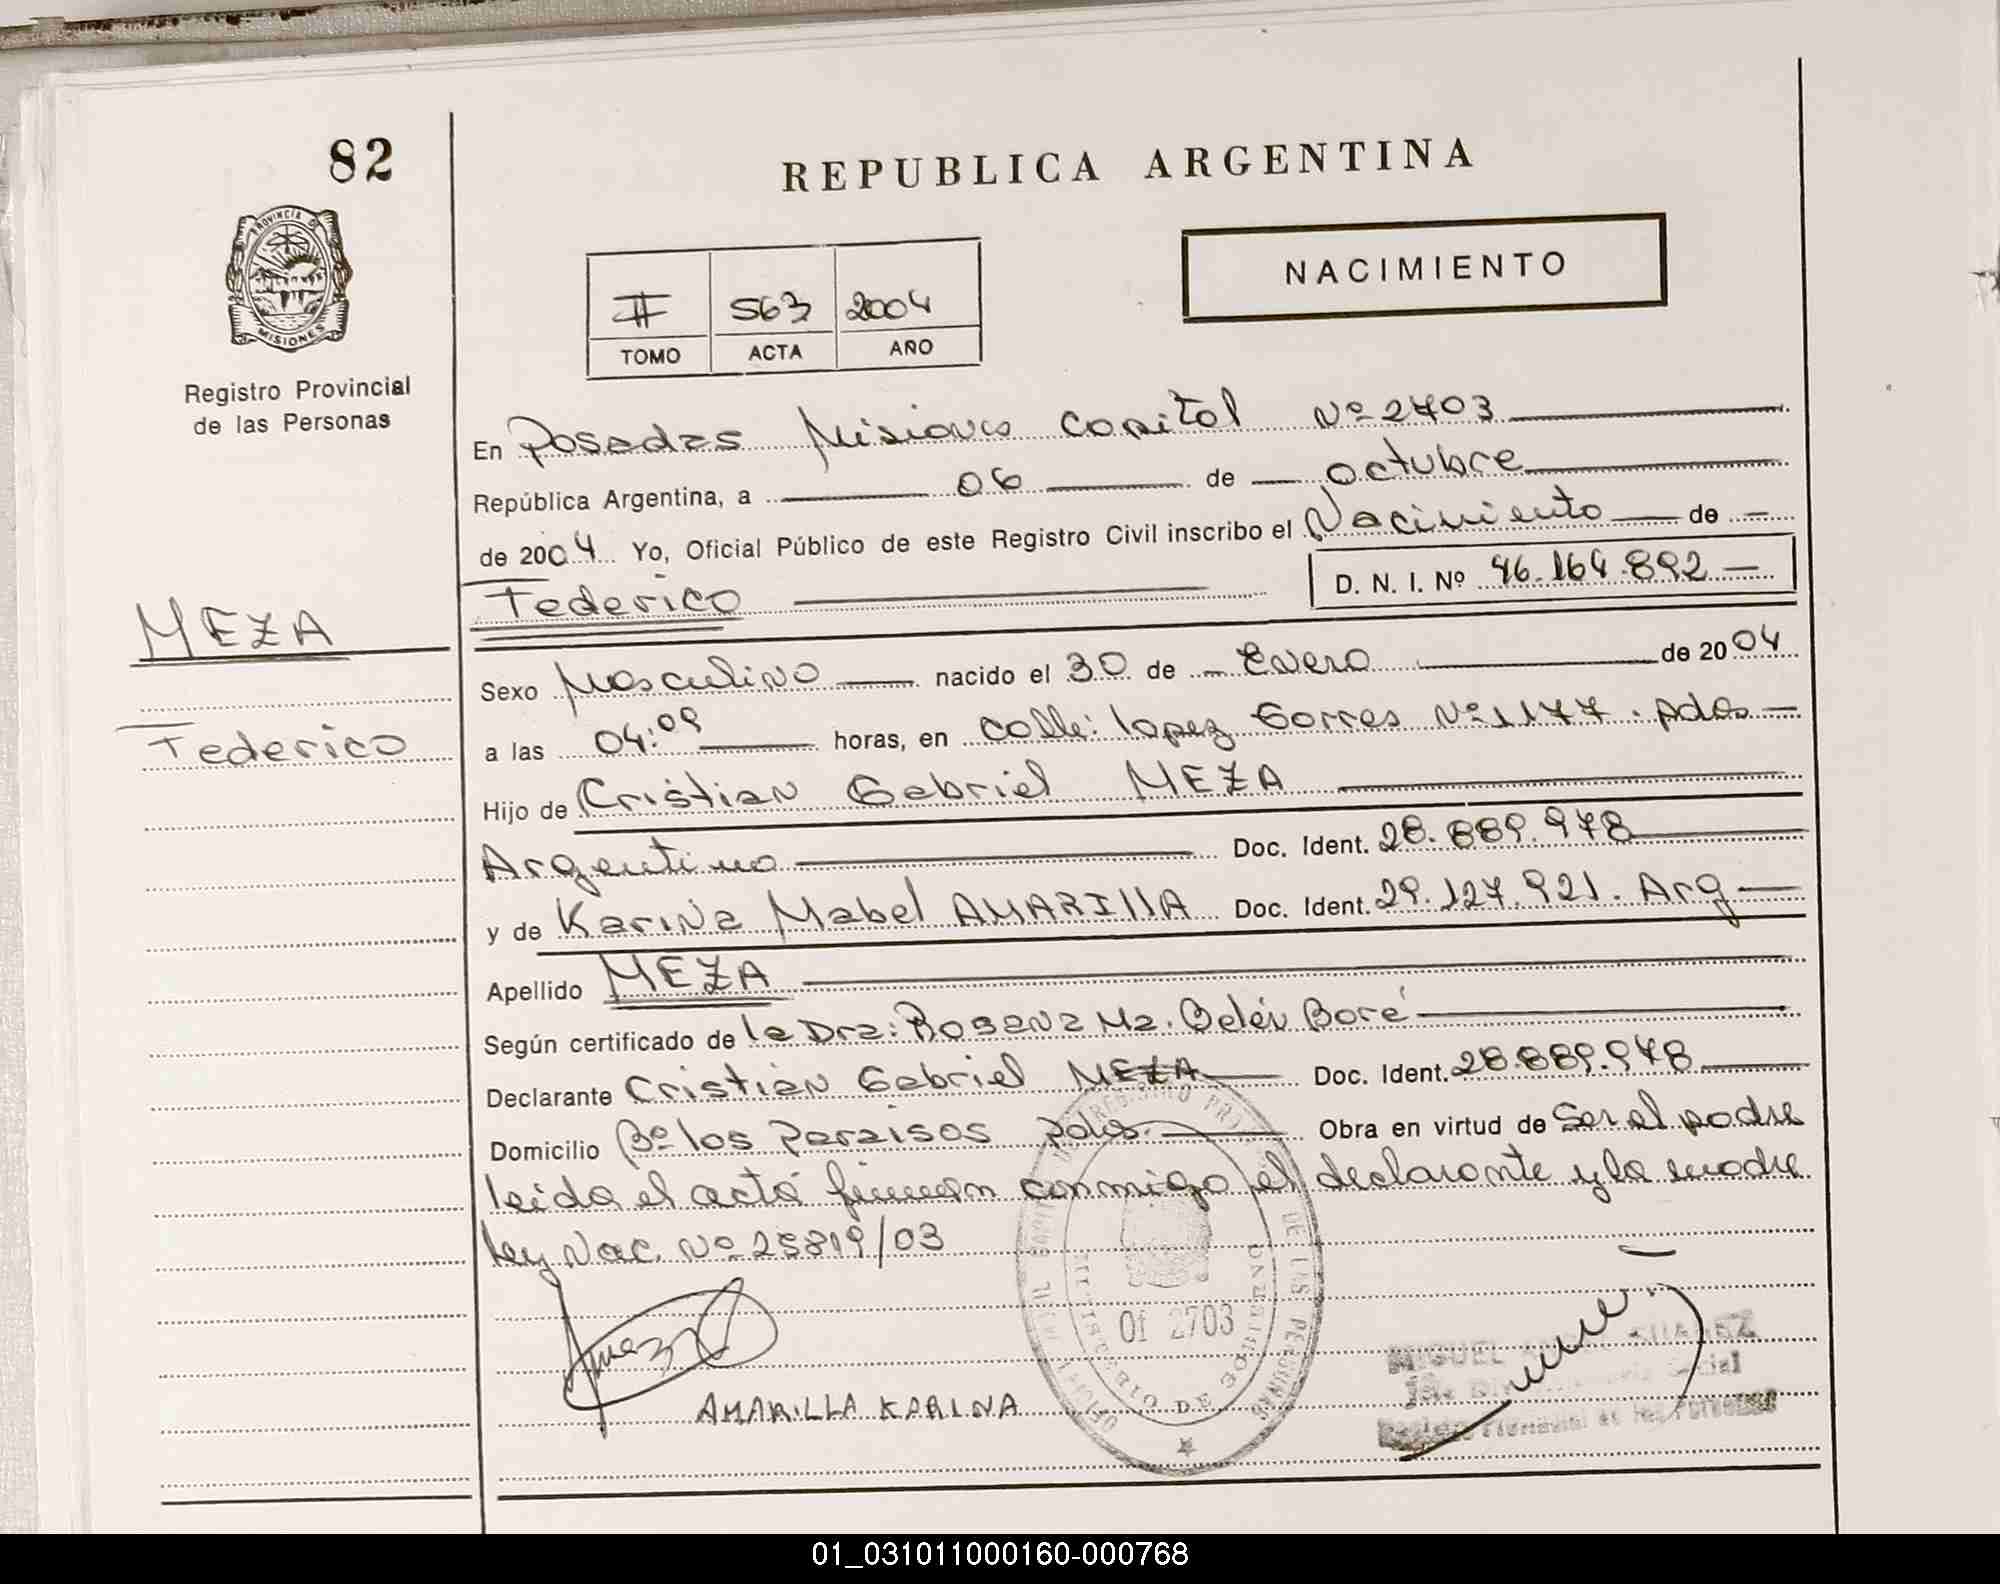 82
REPUBLICA ARGENTINA
PROVINCIA DE
MISIONES
Registro Provincial
de las Personas
NACIMIENTO
II 563 2004
TOMO ACTA AÑO
En Posadas Misiones Capital Nº 2703
República Argentina, a 06 de octubre
de 2004 Yo, Oficial Público de este Registro Civil inscribo el Nacimiento de
Federico D. N. I. Nº 46.164.892
MEZA
Federico
Sexo Masculino nacido el 30 de Enero de 2004
a las 04:09 horas, en calle: lopez torres Nº 1177. pdas
Hijo de Cristian Gabriel MEZA
Argentino Doc. Ident. 28.889.978
y de Karina Mabel AMARILLA Doc. Ident. 29.127.921. Arg
Apellido MEZA
Según certificado de la Dra: Rosana Ma. Belén Boré
Declarante Cristian Gabriel MEZA Doc. Ident. 28.889.978
Domicilio Bº los Paraisos pdas. Obra en virtud de Ser el padre
leida el acta firman conmigo el declarante y la madre
ley Nac. Nº 25819/03
Of 2703
AMARILLA KARINA
MIGUEL SUAREZ
Registro Provincial de las Personas
01_031011000160-000768